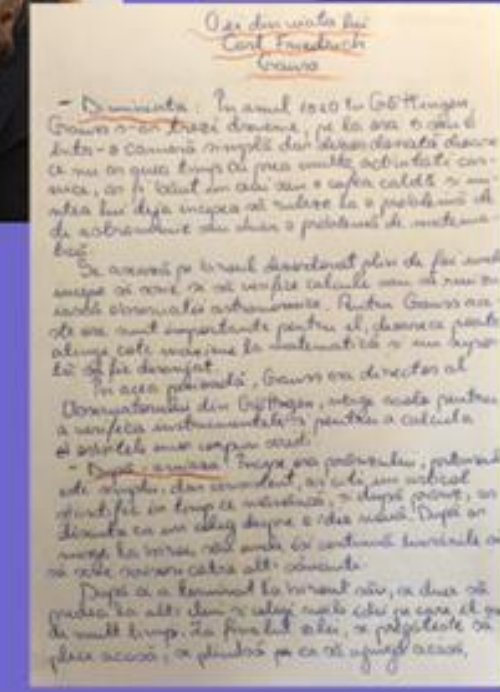 O zi din viata lui
Carl Friedrich
Gauss
- Dimineata: În anul 1820 în Göttingen,
Gauss s-ar trezi devreme, pe la ora 5 sau 6
într-o cameră simplă dar dezordonată deoare
ce nu ar avea timp cu prea multe activitati cas
nice, ar fi băut un ceai sau o cafea caldă si min
tea lui deja incepea să ruleze la o problemă de
de astronomie sau chiar o problemă de matema
tică
Se asează pe biroul dezordonat plin de foi unde
incepe să scrie si să verifice calcule sau să
observatii astronomice. Pentru Gauss ace
ste ore sunt importante pentru el, deoarece poate
atinge cote maxime la matematică si nu
să fie deranjat
În acea perioadă, Gauss era director al
Observatorului din Göttingen, merge acolo pentru
a verifica instrumentele si pentru a calcula
orbitele unor corpuri ceresti
- După-amiaza: Incepe ora prânzului,
este simplu, dar consistent, ar citi un articol
stiintific in timp ce mănâncă, si după prânz, ar
discuta cu un coleg despre o idee nouă. După ar
merge la biroul său unde isi continuă lucrările si
să scrie scrisori către alti savanti.
După ce a terminat la biroul său, se duce să
predea la alti elevi si colegi
de mult timp. La finalul zilei, se pregăteste să
plece acasă, se plimbă pe ca să ajungă acasă,